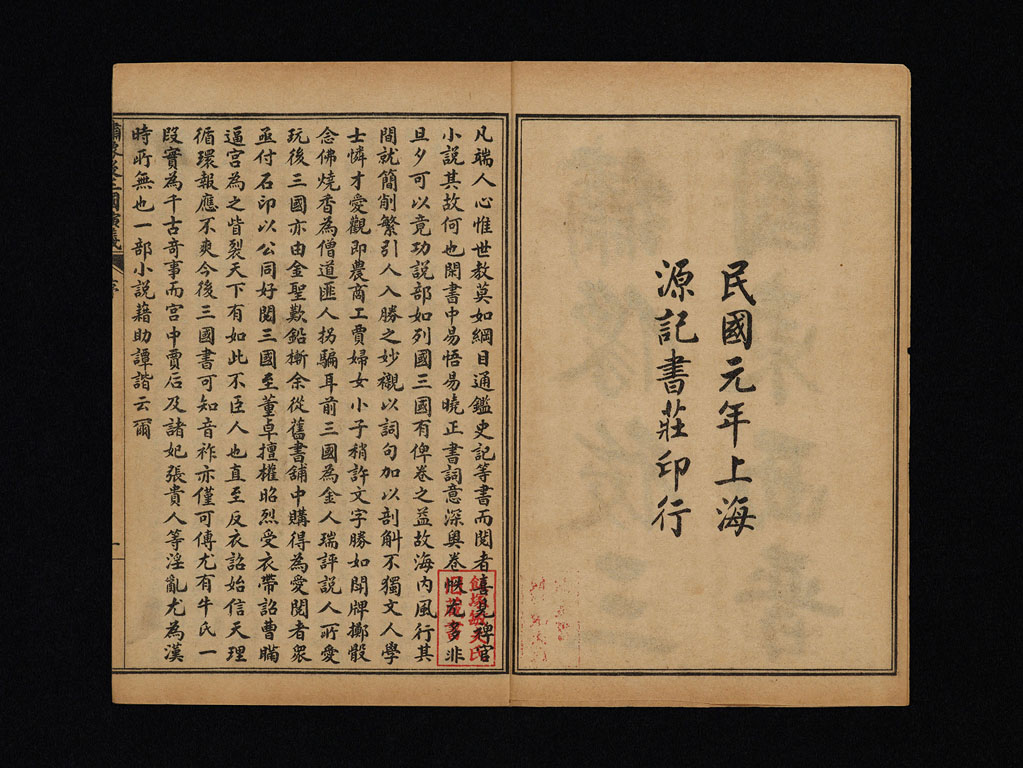 民國元年上海
源記書莊印行
凡端人心惟世教莫如綱目通鑑史記等書而閱者喜尭稗官
小說其故何也閑書中易悟易曉正書詞意深奧卷帙尤多非
旦夕可以竟功說部如列國三國有俾卷之益故海内風行其
間就簡削繁引人入勝之妙襯以詞句加以剖斛不獨文人學
士憐才愛觀即農商工賈婦女小子稍許文字勝如閗牌擲骰
念佛燒香為僧道匪人拐騙耳前三國為金人瑞評說人所愛
玩後三國亦由金聖歎鉛槧余從舊書舖中購得為愛閱者衆
亟付石印以公同好閱三國至董卓擅權昭烈受衣帶詔曹瞞
逼宫為之眥裂天下有如此不臣人也直至反衣詔始信天理
循環報應不爽今後三國書可知音祚亦僅可傳尤有牛氏一
段實為千古奇事而宫中賈后及諸妃張貴人等淫亂尤為漢
時所無也一部小說藉助譚諧云爾
繡像後三國演義
序
一